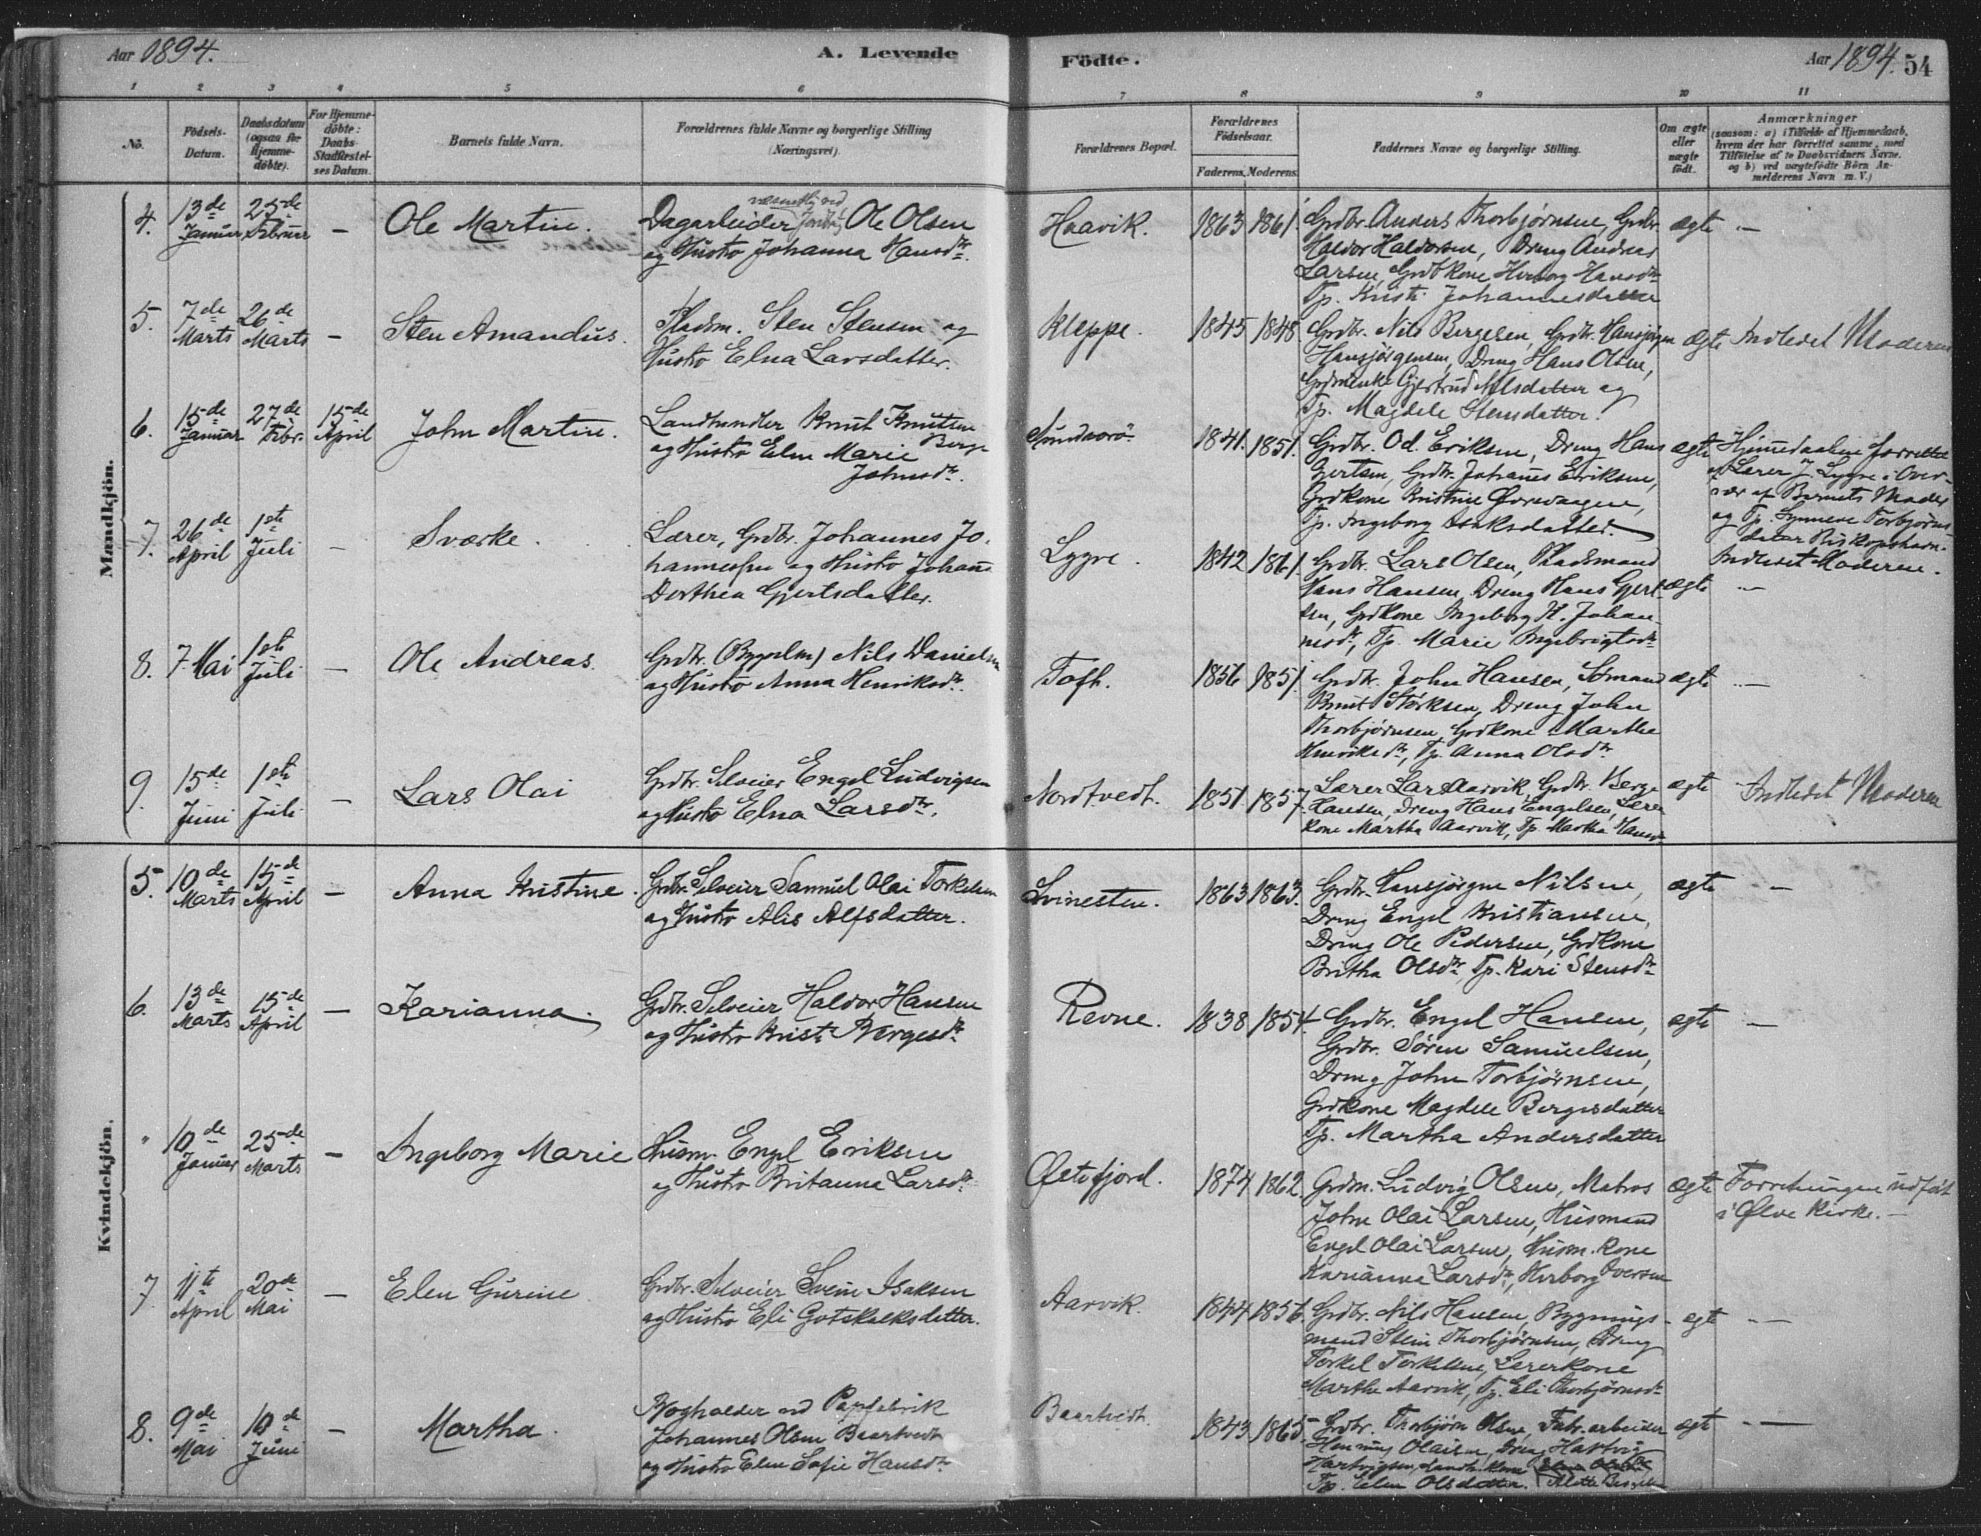 Aar 1894. A. Levende Födte. Aar 1894. 54
1 2 3 4 5 6 7 8 9 10 11
No. Födsels-Datum. Daabsdatum (ogsaa for Hjemme-döbte). For Hjemme-döbte: Daabs-Stadfæstel-ses Datum. Barnets fulde Navn. Forældrenes fulde Navne og borgerlige Stilling (Næringsvei). Forældrenes Bopæl. Forældrenes Födselsaar. Faderens. Moderens. Faddernes Navne og borgerlige Stilling. Om ægte eller uægte födt. Anmærkninger (saasom: a) i Tilfælde af Hjemmedaab, hvem der har forrettet samme, med Tilföielse af to Daabsvidners Navne, og b) ved uægtefödte Börn An-melderens Navn m. V.)
Mandkjön.
4. 13de Januar 25de Februar — Ole Martin. Dagarbeider væsentlig ved Jordbr. Ole Olsen
og Hustro Johanna Hansdtr.
Haavik. 1863 1861. Grdbr. Anders Thorbjørnsen, Grdbr.
Haldor Haldorsen, Dreng Andreas
Larsen, Grdbkone Herborg Hansdtr
Tp. Kristi Johannesdatter
ægte —
5. 7de Marts 26de Marts — Sten Amandus. Pladsm. Sten Stensen og
Hustro Elna Larsdatter.
Kleppe. 1845 1848. Grdbr. Nils Bergesen, Grdbr. Hansjørgen
Hansjørgensen, Dreng Hans Olsen,
Grdmenke Gjertrud Nilsdatter og
Tp. Magdele Stensdatter.
ægte Indledet Moderen
6. 15de Januar 27de Febr. 15de April John Martin. Landhandler Knut Knutsen Berge
og Hustro Elen Marie
Johnsdtr.
Sundsorö 1841. 1851. Grdbr. Od. Eriksen, Dreng Hans
Gjertsen, Grdbr. Johannes Eriksen,
Grdkone Kristine Øvrevaagen,
Tp. Ingeborg Isaksdatter.
ægte Hjemmedaaben forrettet
af Lærer J. Lygre i Over-
vær af Barnets Moder
og Tp. Synneve Torbjørns
datter Biskopshavn.
Indledet Moderen.
7. 26de April 1ste Juli — Sværke. Lærer, Grdbr. Johannes Jo-
hannessen og Hustro Johanna
Dorthea Gjertsdatter.
Lygre. 1842 1861. Grdbr. Lars Olsen, Pladsmand
Hans Hansen, Dreng Hans Gjert-
sen, Grdkone Ingeborg H. Johan-
nesdtr, Tp. Marie Ingebrigtsdtr
ægte —
8. 7. Mai 1ste Juli — Ole Andreas. Grdbr. Nils Danielsen
og Hustro Anna Henriksdtr.
Toft. 1856 1851. Grdbr. John Hansen, Sömand
Knut Størksen, Dreng John
Thorbjørnsen, Grdkone Marthe
Henriksdtr, Tp. Anna Olsdtr
ægte —
9. 15de Juni 1ste Juli — Lars Olai Grdbr. Selveier Engel Ludvigsen
og Hustro Elna Larsdtr.
Nordtvedt. 1851 1857. Lærer Lars Aarvik, Grdbr. Berge
Hansen, Dreng Hans Engelsen, Lærer
kone Martha Aarvik, Tp. Martha Hansdtr
ægte Indledet Moderen
Kvindekjön.
5. 10de Marts 15de April — Anna Kristine. Grdbr. Selveier Samuel Olai Torkelsen
og Hustro Alis Alfsdatter.
Svinesten. 1863 1863. Grdbr. Hansjørgen Nilsen,
Dreng Engel Kristiansen,
Dreng Ole Pedersen, Grdkone
Britha Olsdtr, Tp. Kari Stensdtr
ægte —
6. 13de Marts 15de April — Karianna. Grdbr. Selveier Haldor Hansen
og Hustro Kristi Bergesdtr
Revne. 1838 1854. Grdbr. Engel Hansen,
Grdbr. Søren Samuelsen,
Dreng John Torbjørnsen,
Grdkone Magdele Bergesdatter
Tp. Martha Andersdatter
ægte —
" 10de Januar 25de Marts — Ingeborg Marie Husm. Engel Eriksen
og Hustro Britanna Larsdtr
Østefjord. 1874 1862. Grdm. Ludvig Olsen, Matros
John Olai Larsen, Husmand
Engel Olai Larsen, Husm. kone
Karianne Larsdtr, Herborg Iversen
ægte Forretningen udført
i Ølve Kirke. —
7. 11te April 20de Mai — Elen Gurine Grdbr. Selveier Svein Isaksen
og Hustro Eli Gotskalksdatter.
Aarvik. 1844 1856. Grdbr. Nils Hansen, Bygnings-
mand Stein Thorbjørnsen, Dreng
Torkel Torkelsen, Lærerkone
Marthe Aarvik, Tp. Eli Thorbjørnsdtr
egte —
8. 9de Mai 10de Juni — Martha. Bogholder ved Papfabrik
Johannes Olsen Baartvedt
og Hustro Elen Sofie Hansdtr
Baartvedt. 1843. 1865. Grdbr. Thorbjørn Olsen, Fabr. arbeider
Henning Olaisen, Dreng Hartvig
Hartvigsen, Landh. kone
Tp. Elen Olsdatter.
egt —